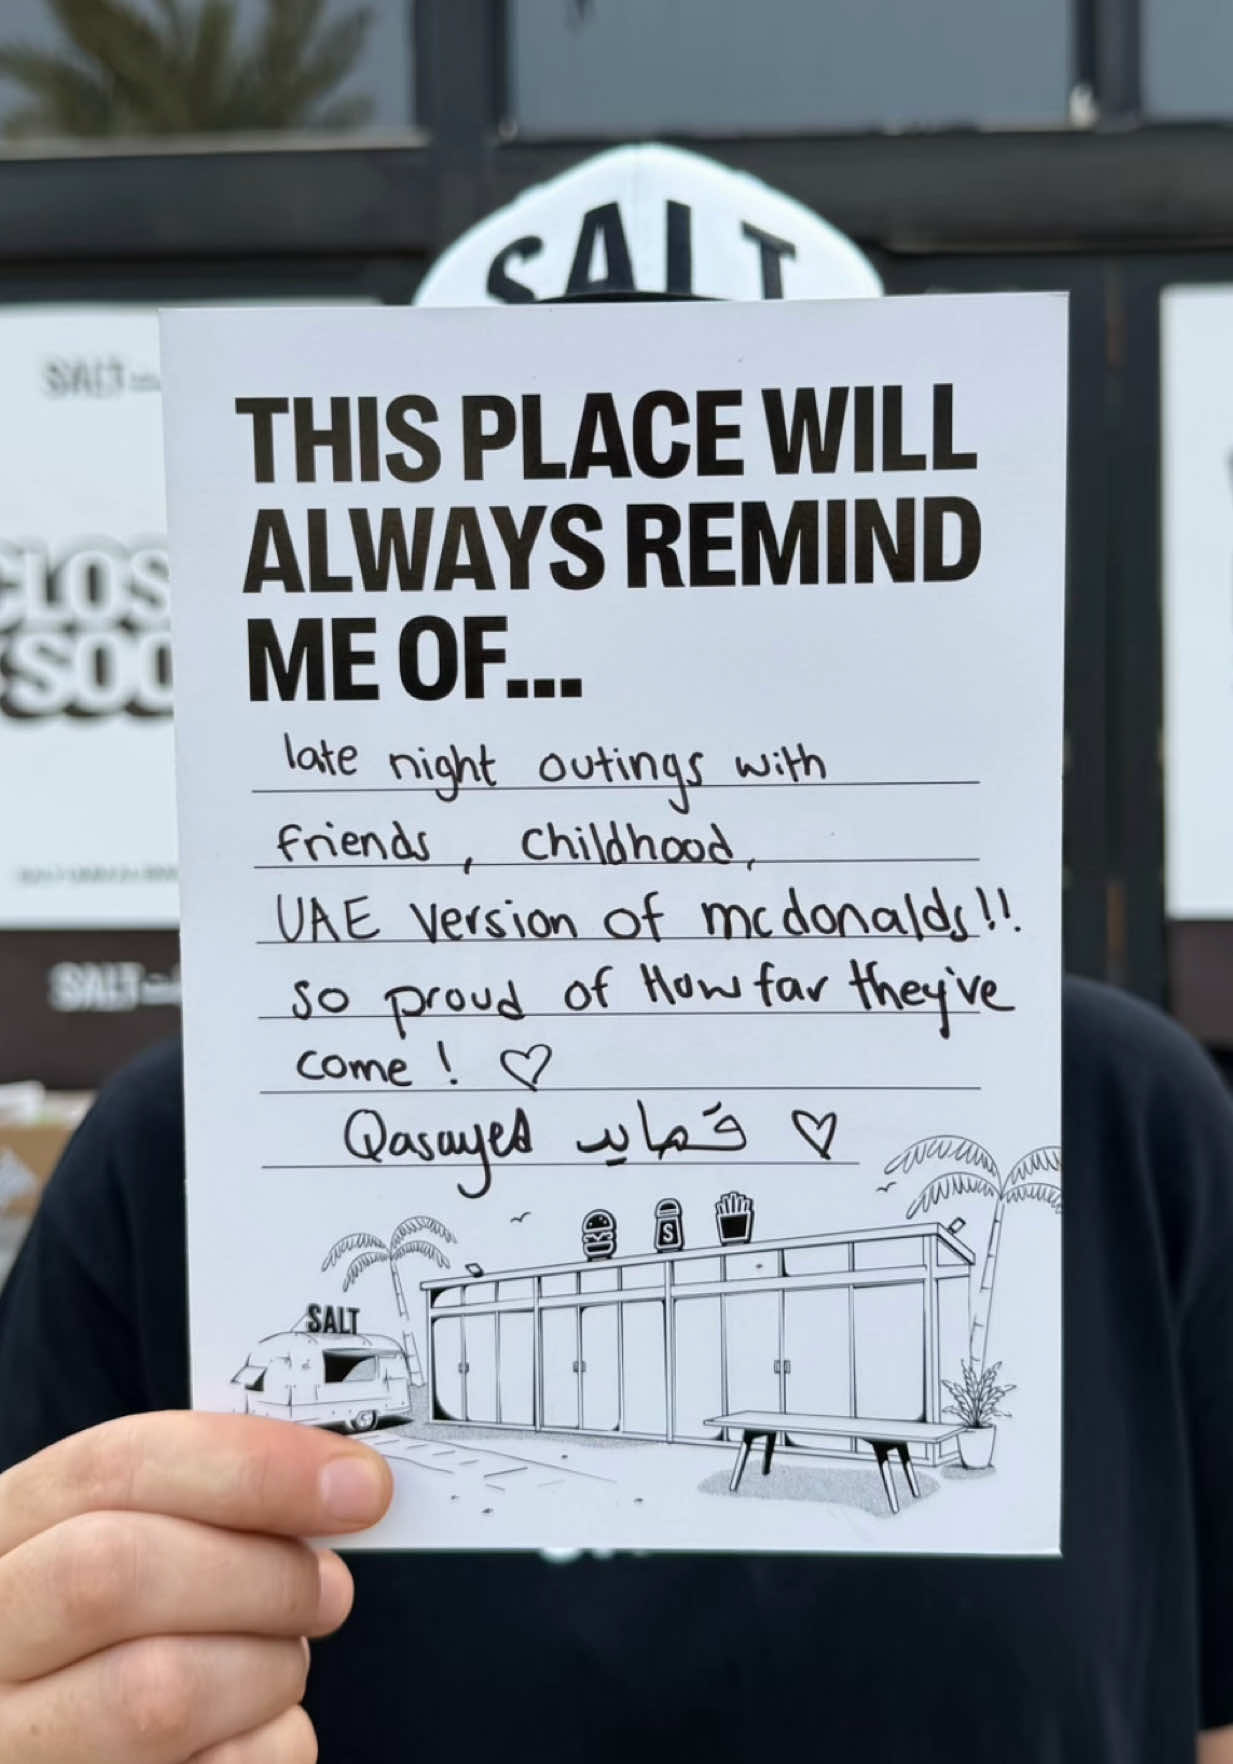 SALT
SALT
CLOS
SOO
SALT
THIS PLACE WILL
ALWAYS REMIND
ME OF...
late night outings with
friends, childhood,
UAE version of mcdonalds!!
so proud of How far they've
come! ♡
Qasayed قصايد ♡
S
SALT